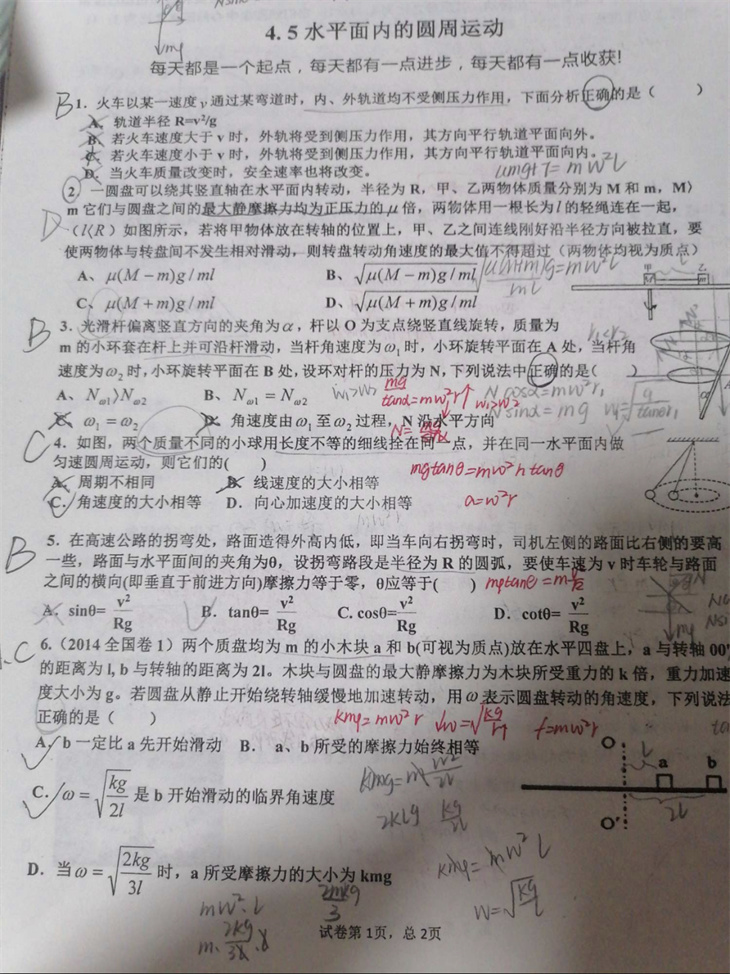 4.5水平面内的圆周运动
每天都是一个起点，每天都有一点进步，每天都有一点收获!
B 1. 火车以某一速度 v 通过某弯道时，内、外轨道均不受侧压力作用，下面分析正确的是（ ）
A. 轨道半径 R=v²/g
B. 若火车速度大于 v 时，外轨将受到侧压力作用，其方向平行轨道平面向外。
C. 若火车速度小于 v 时，外轨将受到侧压力作用，其方向平行轨道平面向内。
D. 当火车质量改变时，安全速率也将改变。
umg+T=mw²l
2 一圆盘可以绕其竖直轴在水平面内转动，半径为 R，甲、乙两物体质量分别为 M 和 m，M〉
D m 它们与圆盘之间的最大静摩擦力均为正压力的 μ 倍，两物体用一根长为 l 的轻绳连在一起，
（l〈R）如图所示，若将甲物体放在转轴的位置上，甲、乙之间连线刚好沿半径方向被拉直，要
使两物体与转盘间不发生相对滑动，则转盘转动角速度的最大值不得超过（两物体均视为质点）
A、μ(M−m)g/ml B、√μ(M−m)g/ml
μ(M+m)g=mw²l
ml
甲 乙
M m
C、μ(M+m)g/ml D、√μ(M+m)g/ml
B 3. 光滑杆偏离竖直方向的夹角为 α，杆以 O 为支点绕竖直线旋转，质量为
r₁<r₂
m 的小环套在杆上并可沿杆滑动，当杆角速度为 ω₁ 时，小环旋转平面在 A 处，当杆角
速度为 ω₂ 时，小环旋转平面在 B 处，设环对杆的压力为 N，下列说法中正确的是（ ）
A、Nω1〉Nω2 B、Nω1 = Nω2 w₁>w₂ mg/tanα=mw²r↑ w₁>w₂ Ncosα=mw²r₁
Nsinα=mg
C、ω₁ = ω₂ D、角速度由 ω₁ 至 ω₂ 过程，N 沿水平方向
C 4. 如图，两个质量不同的小球用长度不等的细线拴在同一点，并在同一水平面内做
匀速圆周运动，则它们的( )
mgtanθ=mw²htanθ
A. 周期不相同 B. 线速度的大小相等
C. 角速度的大小相等 D. 向心加速度的大小相等 a=w²r
B 5. 在高速公路的拐弯处，路面造得外高内低，即当车向右拐弯时，司机左侧的路面比右侧的要高
一些，路面与水平面间的夹角为θ，设拐弯路段是半径为 R 的圆弧，要使车速为 v 时车轮与路面
之间的横向(即垂直于前进方向)摩擦力等于零，θ应等于( )
A. sinθ=v²/Rg B. tanθ=v²/Rg C. cosθ=v²/Rg D. cotθ=v²/Rg
mg
6.（2014 全国卷 1）两个质盘均为 m 的小木块 a 和 b(可视为质点)放在水平四盘上，a 与转轴 OO'
的距离为 l, b 与转轴的距离为 2l。木块与圆盘的最大静摩擦力为木块所受重力的 k 倍，重力加速
度大小为 g。若圆盘从静止开始绕转轴缓慢地加速转动，用 ω 表示圆盘转动的角速度，下列说法
正确的是（ ） kmg=mw²r w=√kg/r f=mw²r
A. b 一定比 a 先开始滑动 B. a、b 所受的摩擦力始终相等
O l a b
2l
O'
C. ω=√kg/2l 是 b 开始滑动的临界角速度
2klg kg/2l
kmg=mw²l
D. 当 ω=√2kg/3l 时，a 所受摩擦力的大小为 kmg
w=√kg/l
mw²·l 2mkg/3
试卷第 1页，总 2页